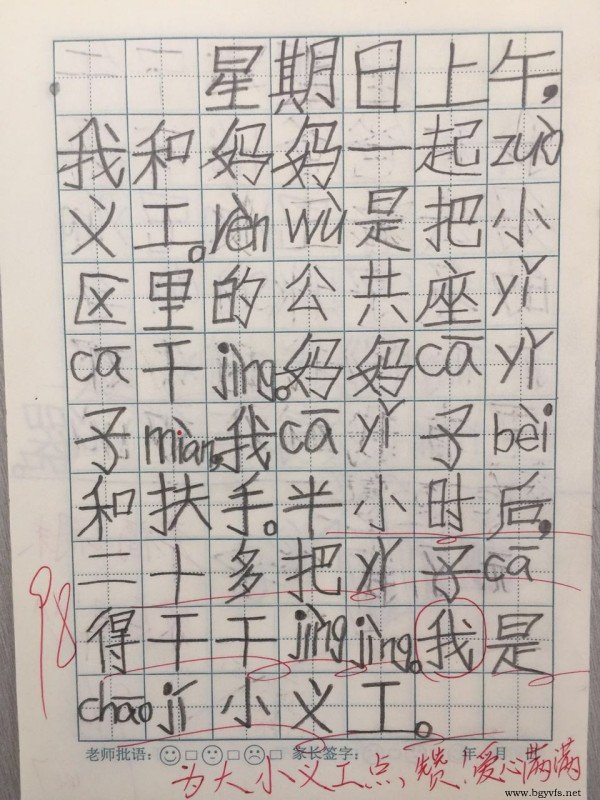 星期日上午,
我和妈妈一起zuò
义工。rèn wù是把小
区里的公共座yǐ
cā干jìng。妈妈cā yǐ
子miàn,我cā yǐ子bèi
和扶手。半小时后,
二十多把yǐ子cā
得干干jìng jìng。我是
chāo jí小义工。
98
老师批语: 家长签字: 年 月
为大小义工点赞,爱心满满
www.bgyvfs.net